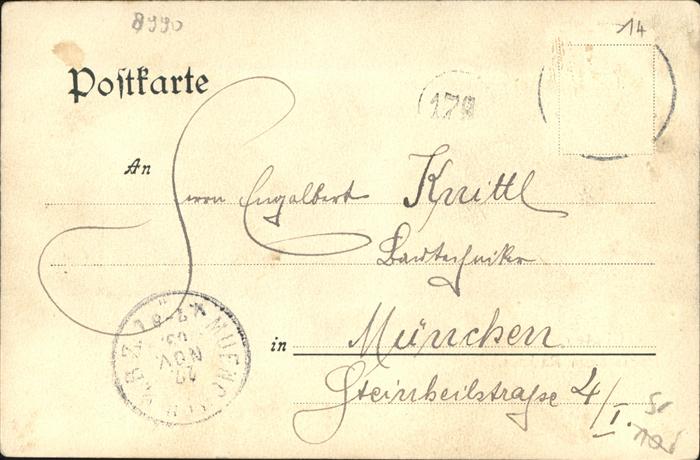 8990
14
Postkarte
179
An Herrn Engelbert Knittl
Bautechniker
in München
Steinheilstraße 4/I.
MUENCHEN B.Z.
27
NOV
03.